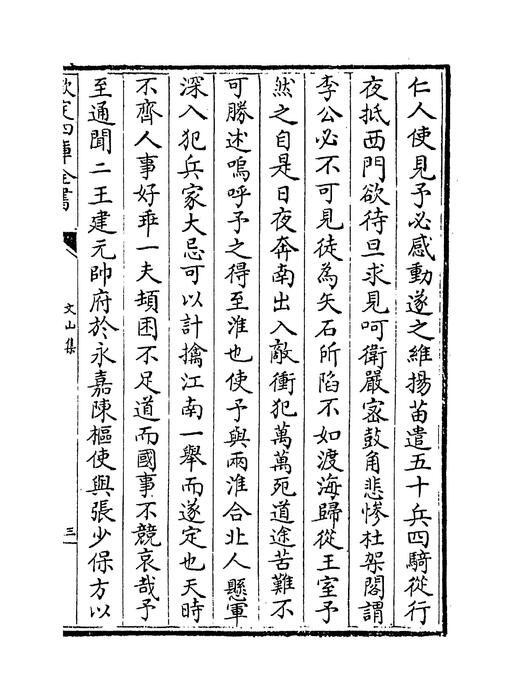 仁人使見予必感動遂之維揚苗遣五十兵四騎從行
夜抵西門欲待旦求見呵衛嚴宻鼓角悲惨杜架閣謂
李公必不可見徒為矢石所陷不如渡海歸從王室予
然之自是日夜奔南出入敵衝犯萬萬死道途苦難不
可勝述嗚呼予之得至淮也使予與兩淮合北人懸軍
深入犯兵家大忌可以計擒江南一舉而遂定也天時
不齊人事好乖一夫頓困不足道而國事不競哀哉予
至通聞二王建元帥府於永嘉陳樞使與張少保方以
欽定四庫全書
文山集
三